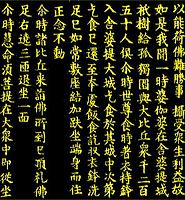 以能荷佛難勝事 攝受衆生利益故
如是我聞一時婆伽婆在舍婆提城
祇樹給孤獨園與大比丘衆千二百
五十人俱尒時世尊食時著衣持鉢
入舍婆提大城乞食於其城中次第
乞食已還至本處飯食訖收衣鉢洗
足已如常敷座結加趺坐端身而住
正念不動
尒時諸比丘來詣佛所到已頂礼佛
足右遶三匝退坐一面
尒時慧命須菩提在大衆中即從坐